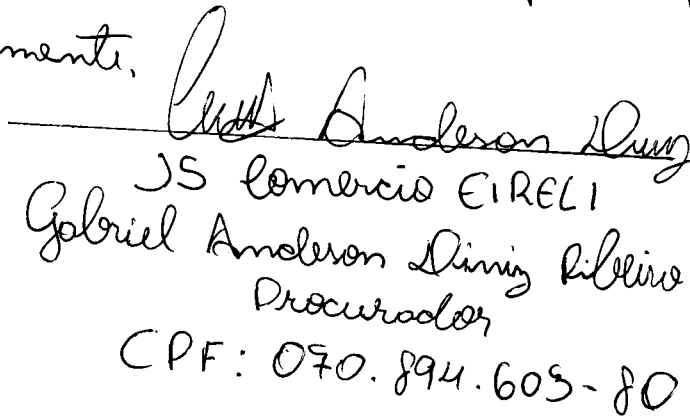 mente,
Anderson Diniz
JS Comercio EIRELI
Gabriel Anderson Diniz Ribeiro
Procurador
CPF: 070.894.605-80